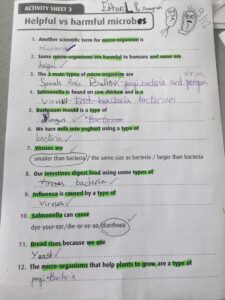 ACTIVITY SHEET 3
Helpful vs harmful microbes
1. Another scientific term for micro-organism is
microbe
2. Some micro-organisms are harmful to humans and some are
helpful
3. The 3 main types of micro-organism are
virus
bacteria and
4. Salmonella is found on raw chicken and is a
bacteria
5. Bathroom mould is a type of
fungus
6. We turn milk into yoghurt using a type of
bacteria
7. Viruses are
smaller than bacteria / the same size as bacteria / larger than bacteria
8. Our intestines digest food using some types of
bacteria
9. Influenza is caused by a type of
viruses
10. Salmonella can cause
dye-your-ear/die-or-ee-aa/diarrhoea
11. Bread rises because we use
Yeast
12. The micro-organisms that help plants to grow are a type of